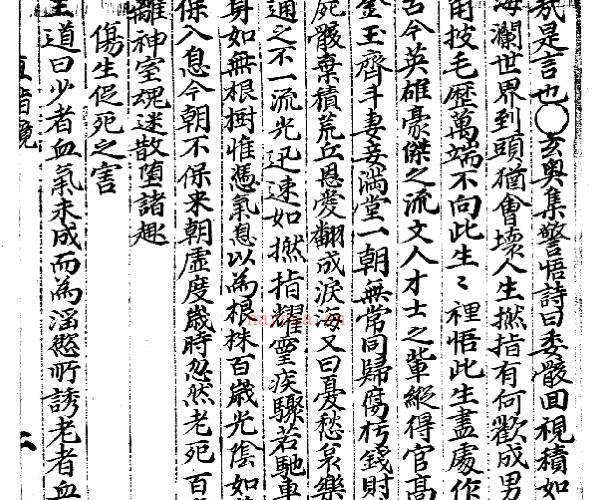 哉是言也○玄奥集警悟詩曰委骸回視積如
海瀾世界到頭猶會壞人生撚指有何歡成男
用披毛歷萬端不向此生〻裡悟此生盡處作
古今英雄豪傑之流文人才士之輩縱得官高
金玉齊斗妻妾滿堂一朝無常同歸腐朽錢財
屍骸棄積荒丘恩愛翻成淚海又曰憂愁哀樂
通之不一流光迅速如撚指耀靈疾驟若馳車
身如無根樹惟憑氣息以為根株百歲光陰如
保入息今朝不保来朝虛度歲時忽然老死百
離神室魂迷散墮諸趣
傷生促死之害
道曰少者血氣未成而為滛慾所誘老者血